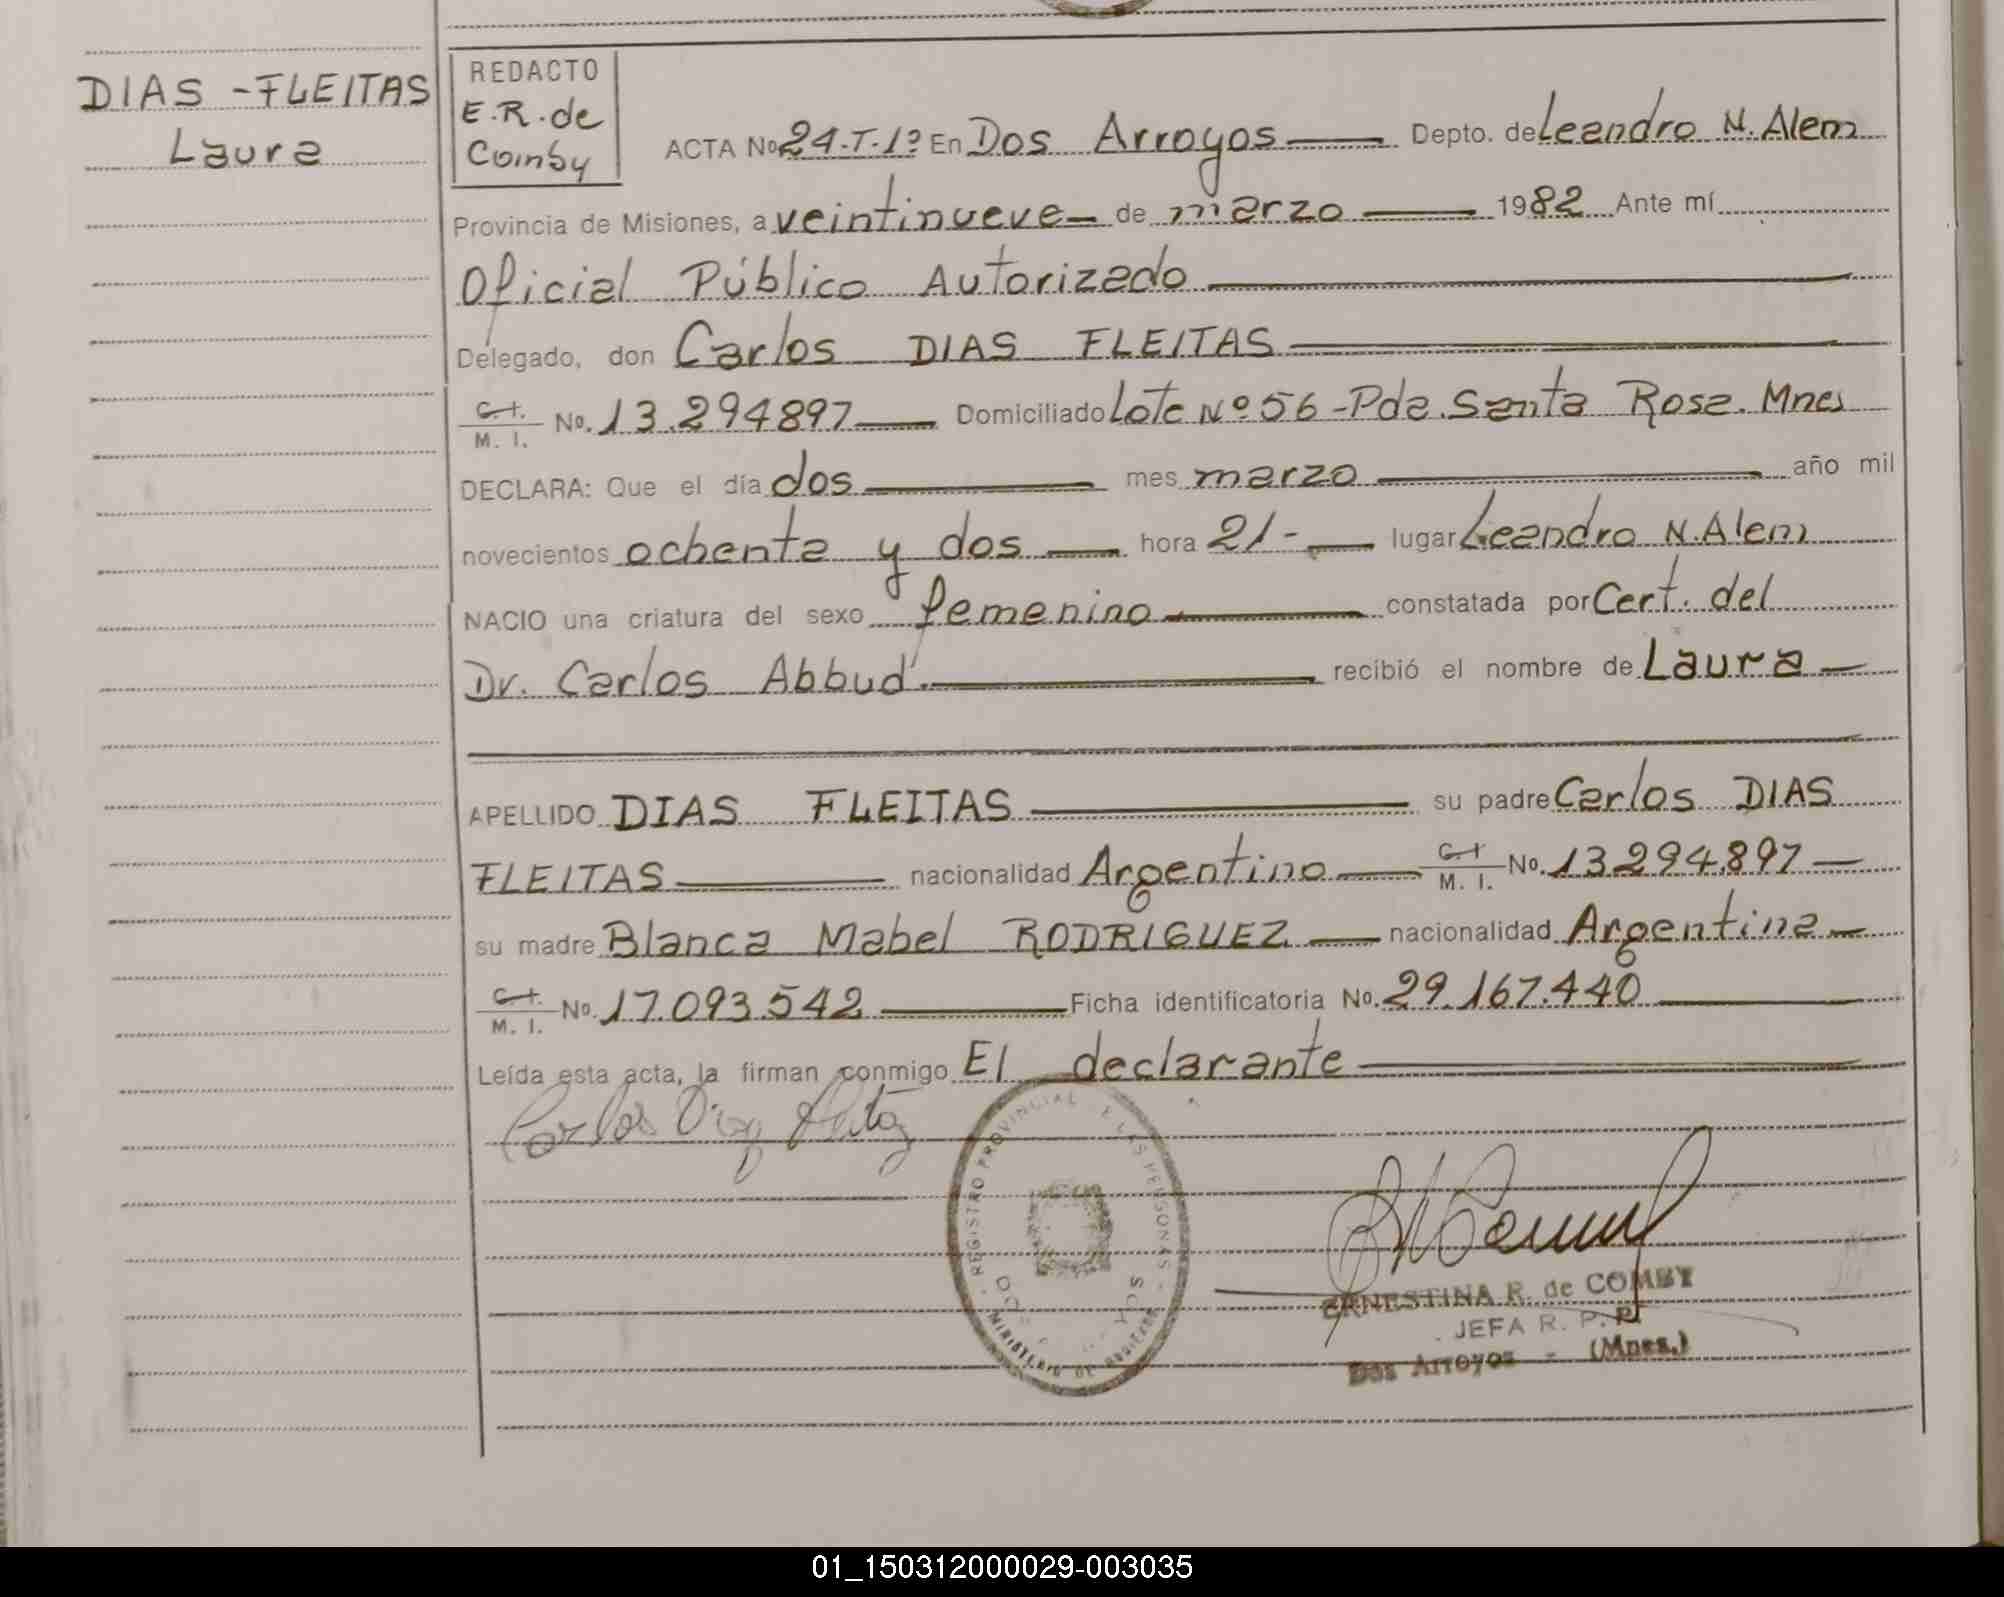 DIAS - FLEITAS
Laura
REDACTO
E.R. de
Comby
ACTA No 24.T.1º En Dos Arroyos Depto. de Leandro N. Alem
Provincia de Misiones, a veintinueve de marzo 1982 Ante mí
Oficial Público Autorizado
Delegado, don Carlos DIAS FLEITAS
C.I. M. I. No. 13.294897 Domiciliado Lote Nº 56 - Pda. Santa Rosa. Mnes
DECLARA: Que el día dos mes marzo año mil
novecientos ochenta y dos hora 21- lugar Leandro N. Alem
NACIO una criatura del sexo femenino constatada por Cert. del
Dr. Carlos Abbud. recibió el nombre de Laura
APELLIDO DIAS FLEITAS su padre Carlos DIAS
FLEITAS nacionalidad Argentino C.I. M. I. No. 13.294.897
su madre Blanca Mabel RODRIGUEZ nacionalidad Argentina
C.I. M. I. No. 17.093.542 Ficha identificatoria No. 29.167.440
Leída esta acta, la firman conmigo El declarante
Carlos
REGISTRO PROVINCIAL LAS PERSONAS
MINISTERIO DE
ERNESTINA R. de COMBY
JEFA R. P. P.
Dos Arroyos - (Mnes.)
01_150312000029-003035